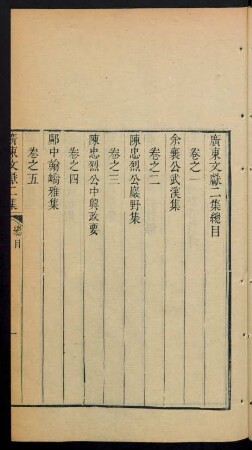 廣東文獻二集總目
卷之一
余襄公武溪集
卷之二
陳忠烈公巖野集
卷之三
陳忠烈公中興政要
卷之四
鄺中翰嶠雅集
卷之五
廣東文獻二集
總目
一